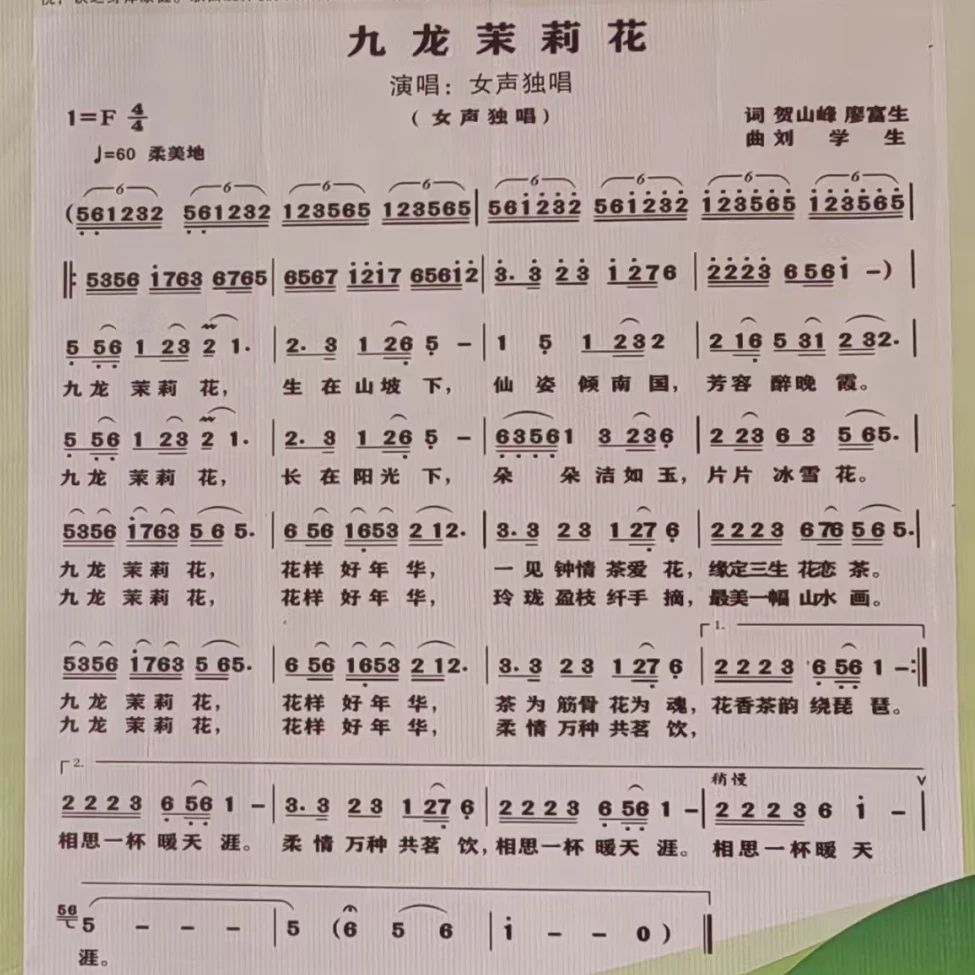 九龙茉莉花
演唱：女声独唱
1=F 4/4
（女声独唱）
词 贺山峰 廖富生
曲 刘 学 生
♩=60 柔美地
6 6 6 6 6 6 6 6
(561232 561232 123565 123565 | 561232 561232 123565 123565 |
‖: 5356 1763 6765 | 6567 1217 65612 | 3. 3 2 3 1 276 | 2223 6 561 -) |
5 56 1 23 2 1. | 2. 3 1 26 5 - | 1 5 1 232 | 2 16 5 31 2 32. |
九 龙 茉 莉 花， 生 在 山 坡 下， 仙 姿 倾 南 国， 芳容 醉晚 霞。
5 56 1 23 2 1. | 2. 3 1 26 5 - | 63561 3 236 | 2 23 6 3 5 65. |
九 龙 茉 莉 花， 长 在 阳 光 下， 朵 朵 洁 如 玉， 片片 冰雪 花。
5356 1763 5 6 5. | 6 56 1653 2 12. | 3. 3 2 3 1 27 6 | 2223 6 76 5 6 5. |
九 龙 茉 莉 花， 花样 好 年 华， 一 见 钟情 茶爱 花， 缘定三生 花恋 茶。
九 龙 茉 莉 花， 花样 好 年 华， 玲 珑 盈枝 纤手 摘， 最美一幅 山水 画。
1.
5356 1763 5 65. | 6 56 1653 2 12. | 3. 3 2 3 1 27 6 | 2223 6 56 1 - :‖
九 龙 茉 莉 花， 花样 好 年 华， 茶 为 筋骨 花为 魂， 花香茶韵 绕琵 琶。
九 龙 茉 莉 花， 花样 好 年 华， 柔 情 万种 共茗 饮，
2. 稍慢 V
2223 6 56 1 - | 3. 3 2 3 1 27 6 | 2223 6 56 1 - | 2223 6 1 - |
相思一杯 暖天 涯。 柔 情 万种 共茗 饮，相思一杯 暖天 涯。 相思一杯暖 天
56 5 - - - | 5 (6 5 6 | 1 - - 0) ‖
涯。